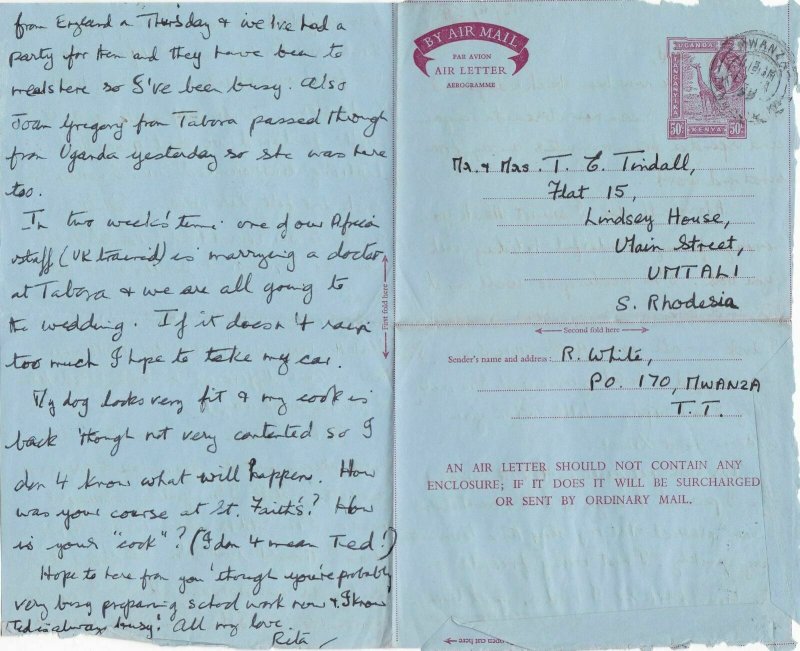 from England on Thursday & we've had a
party for them and they have been to
meals here so I've been busy. Also
Joan Gregory from Tabora passed through
from Uganda yesterday so she was here
too.
In two week's time one of our African
staff (UK trained) is marrying a doctor
at Tabora & we are all going to
the wedding. If it doesn't rain
too much I hope to take my car.
My dog looks very fit & my cook is
back 'though not very contented so I
don't know what will happen. How
was your course at St. Faith's? How
is your "cook"? (I don't mean Ted!)
Hope to here from you 'though you're probably
very busy preparing school work now & I know
Ted is always busy! All my love
Rita
First fold here
BY AIR MAIL
PAR AVION
AIR LETTER
AEROGRAMME
UGANDA
TANGANYIKA
KENYA
50c 50c
MWANZA
Mr. & Mrs. T. E. Tindall,
Flat 15,
Lindsey House,
Main Street,
UMTALI
S. Rhodesia
Second fold here
Sender's name and address: R. White,
P.O. 170, MWANZA
T.T.
AN AIR LETTER SHOULD NOT CONTAIN ANY
ENCLOSURE; IF IT DOES IT WILL BE SURCHARGED
OR SENT BY ORDINARY MAIL.
open cut here